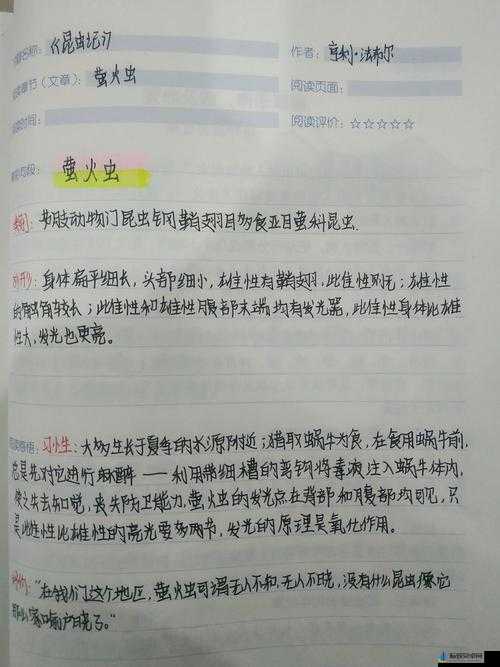 书籍名称：《昆虫记》 作者：亨利·法布尔
阅读章节（文章）：萤火虫 阅读页面：
阅读时间： 阅读评价：☆☆☆☆☆
萤火虫
类别：节肢动物门昆虫纲鞘翅目多食亚目萤科昆虫.
外形：身体扁平细长，头部细小，雄性有鞘翅，雌性则无；雄性
的触角较长；雌性和雄性腹部末端均有发光器，雌性身体比雄
性大，发光也更亮。
阅读感悟：习性：大多生长于夏季的水源附近；猎取蜗牛为食，在食用蜗牛前，
总是先对它进行麻醉——利用带细槽的弯钩将毒液注入蜗牛体内，
使之失去知觉，丧失防卫能力，萤火虫的发光点在背部和腹部均可见，只
是雌性比雄性的亮光要多两节，发光的原理是氧化作用。
"在我们这个地区，萤火虫可谓无人不知，无人不晓，没有什么昆虫像它
那么家喻户晓了。"